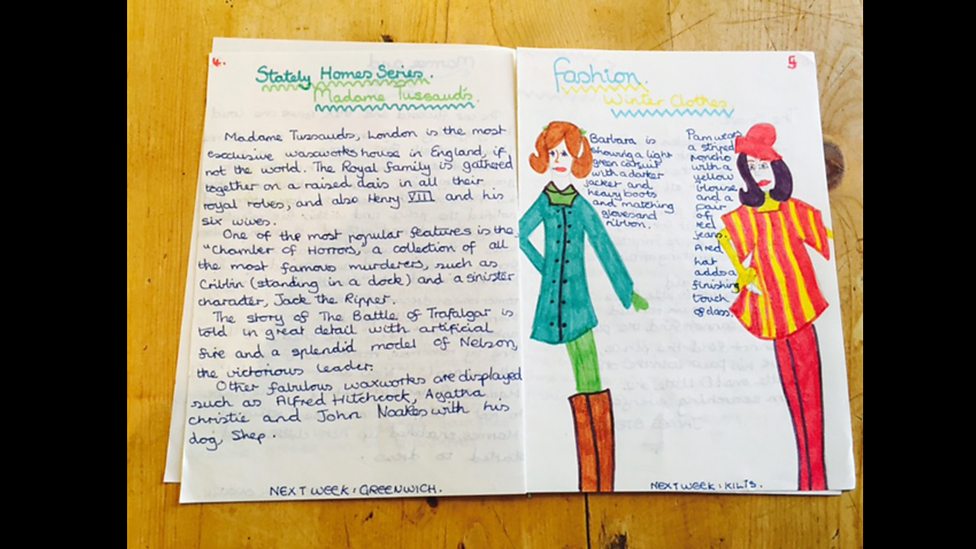 4.
Stately Homes Series.
Madame Tussaud's.
Madame Tussauds, London is the most
exclusive waxworks house in England, if
not the world. The Royal family is gathered
together on a raised dais in all their
royal robes, and also Henry VIII and his
six wives.
One of the most popular features is the
"Chamber of Horrors, a collection of all
the most famous murderers, such as
Cribbin (standing in a dock) and a sinister
character, Jack the Ripper.
The story of The Battle of Trafalgar is
told in great detail with artificial
fire and a splendid model of Nelson,
the victorious leader.
Other fabulous waxworks are displayed
such as Alfred Hitchcock, Agatha
Christie and John Noakes with his
dog, Shep.
NEXT WEEK: GREENWICH.
5
Fashion.
Winter Clothes
Barbara is
showing a light
green catsuit
with a darker
jacket and
heavy boots
and matching
gloves and
ribbon.
Pam wears
a striped
poncho
with a
yellow
blouse
and a
pair
of
red
jeans.
A red
hat
adds a
finishing
touch
of class.
NEXT WEEK: KILTS.